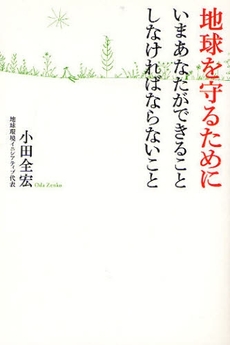 地球を守るために
いまあなたができること
しなければならないこと
小田全宏
Oda Zenko
地球環境イニシアティブ代表